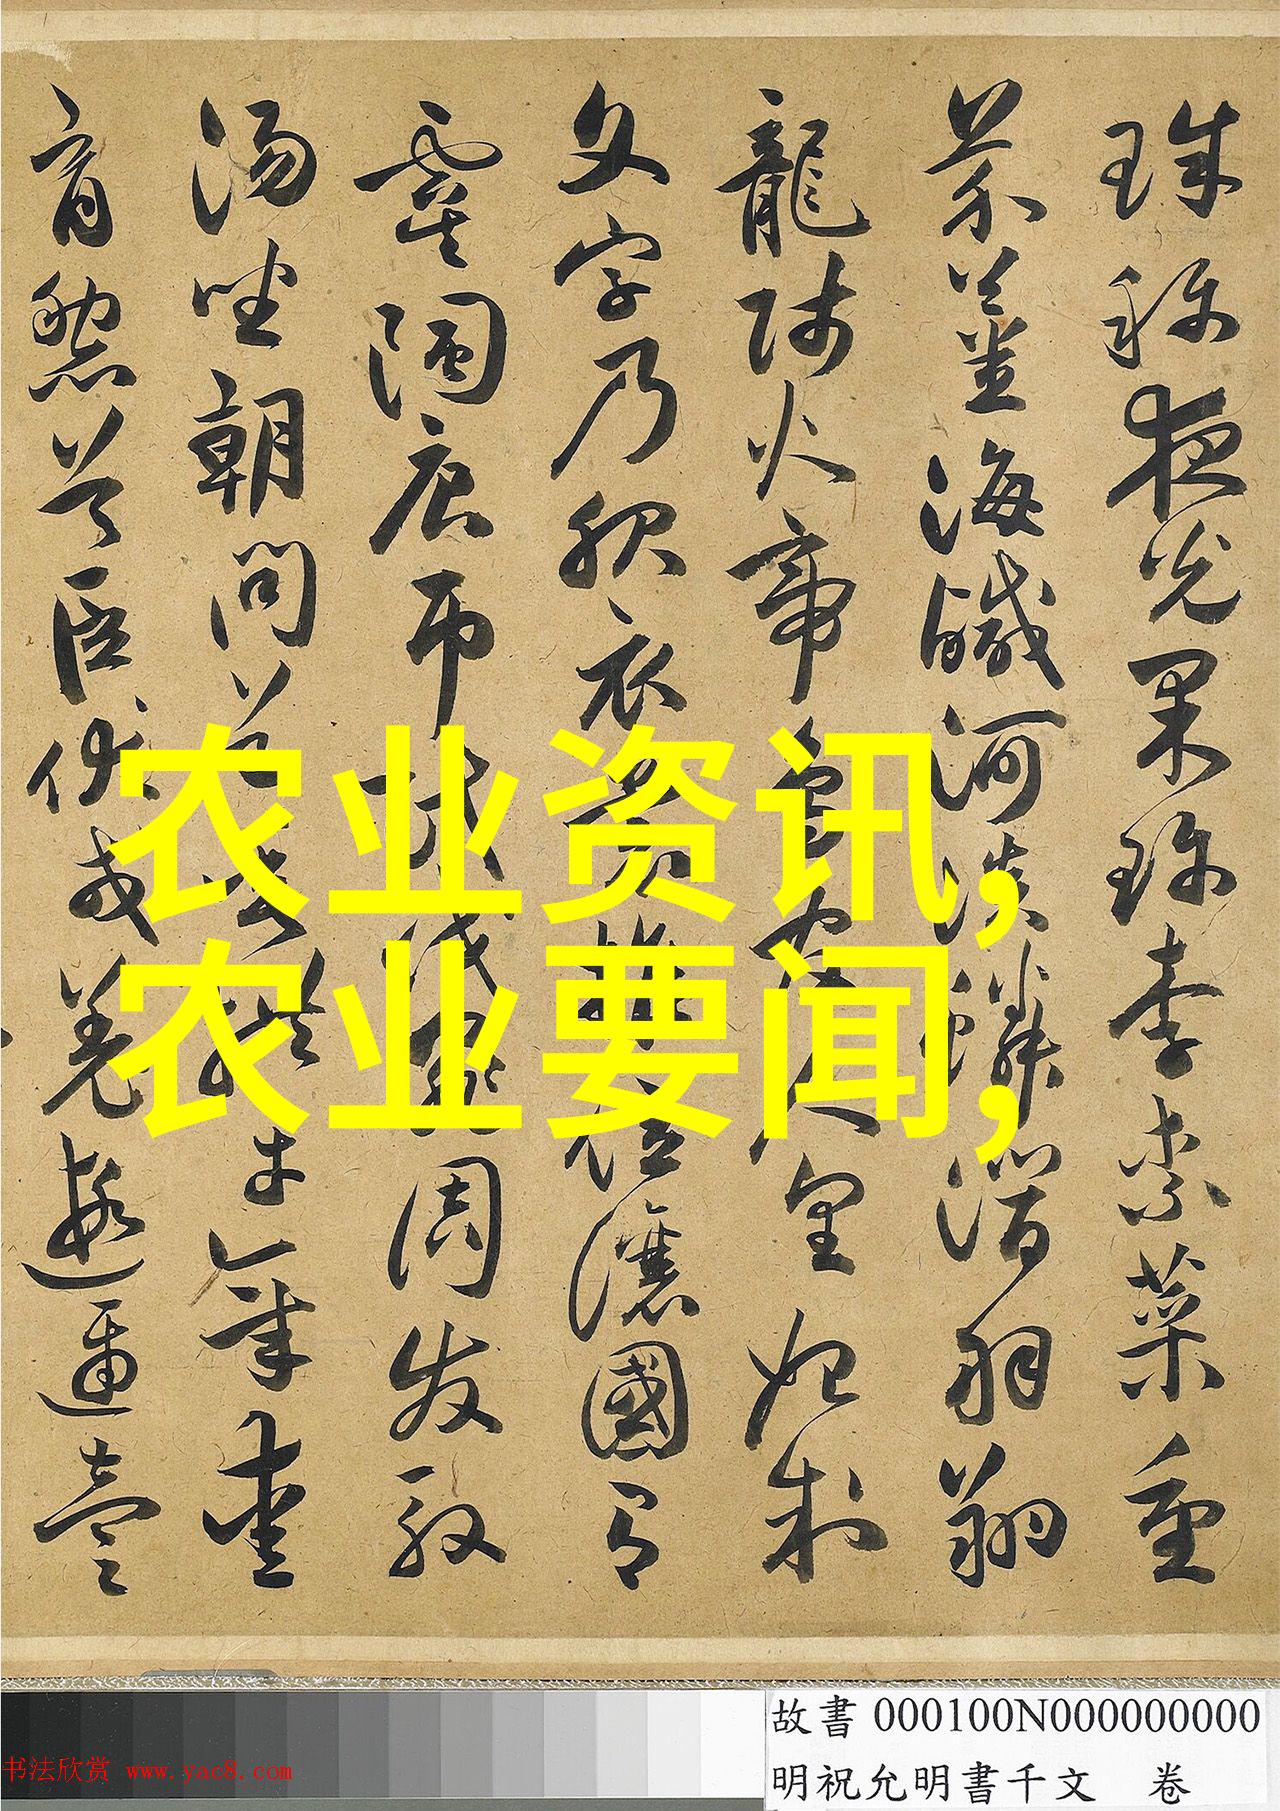 珠稱夜光果珍李柰菜重
芥薑海鹹河淡鱗潛羽翔
龍師火帝鳥官人皇始制
文字乃服衣裳推位讓國有
虞陶唐弔民伐罪周發殷
湯坐朝問道垂拱平章愛
育黎首臣伏戎羌遐邇壹
农业资讯,
农业要闻,
故書 000100N000000000
明祝允明書千文 卷
书法欣赏 www.yac8.com